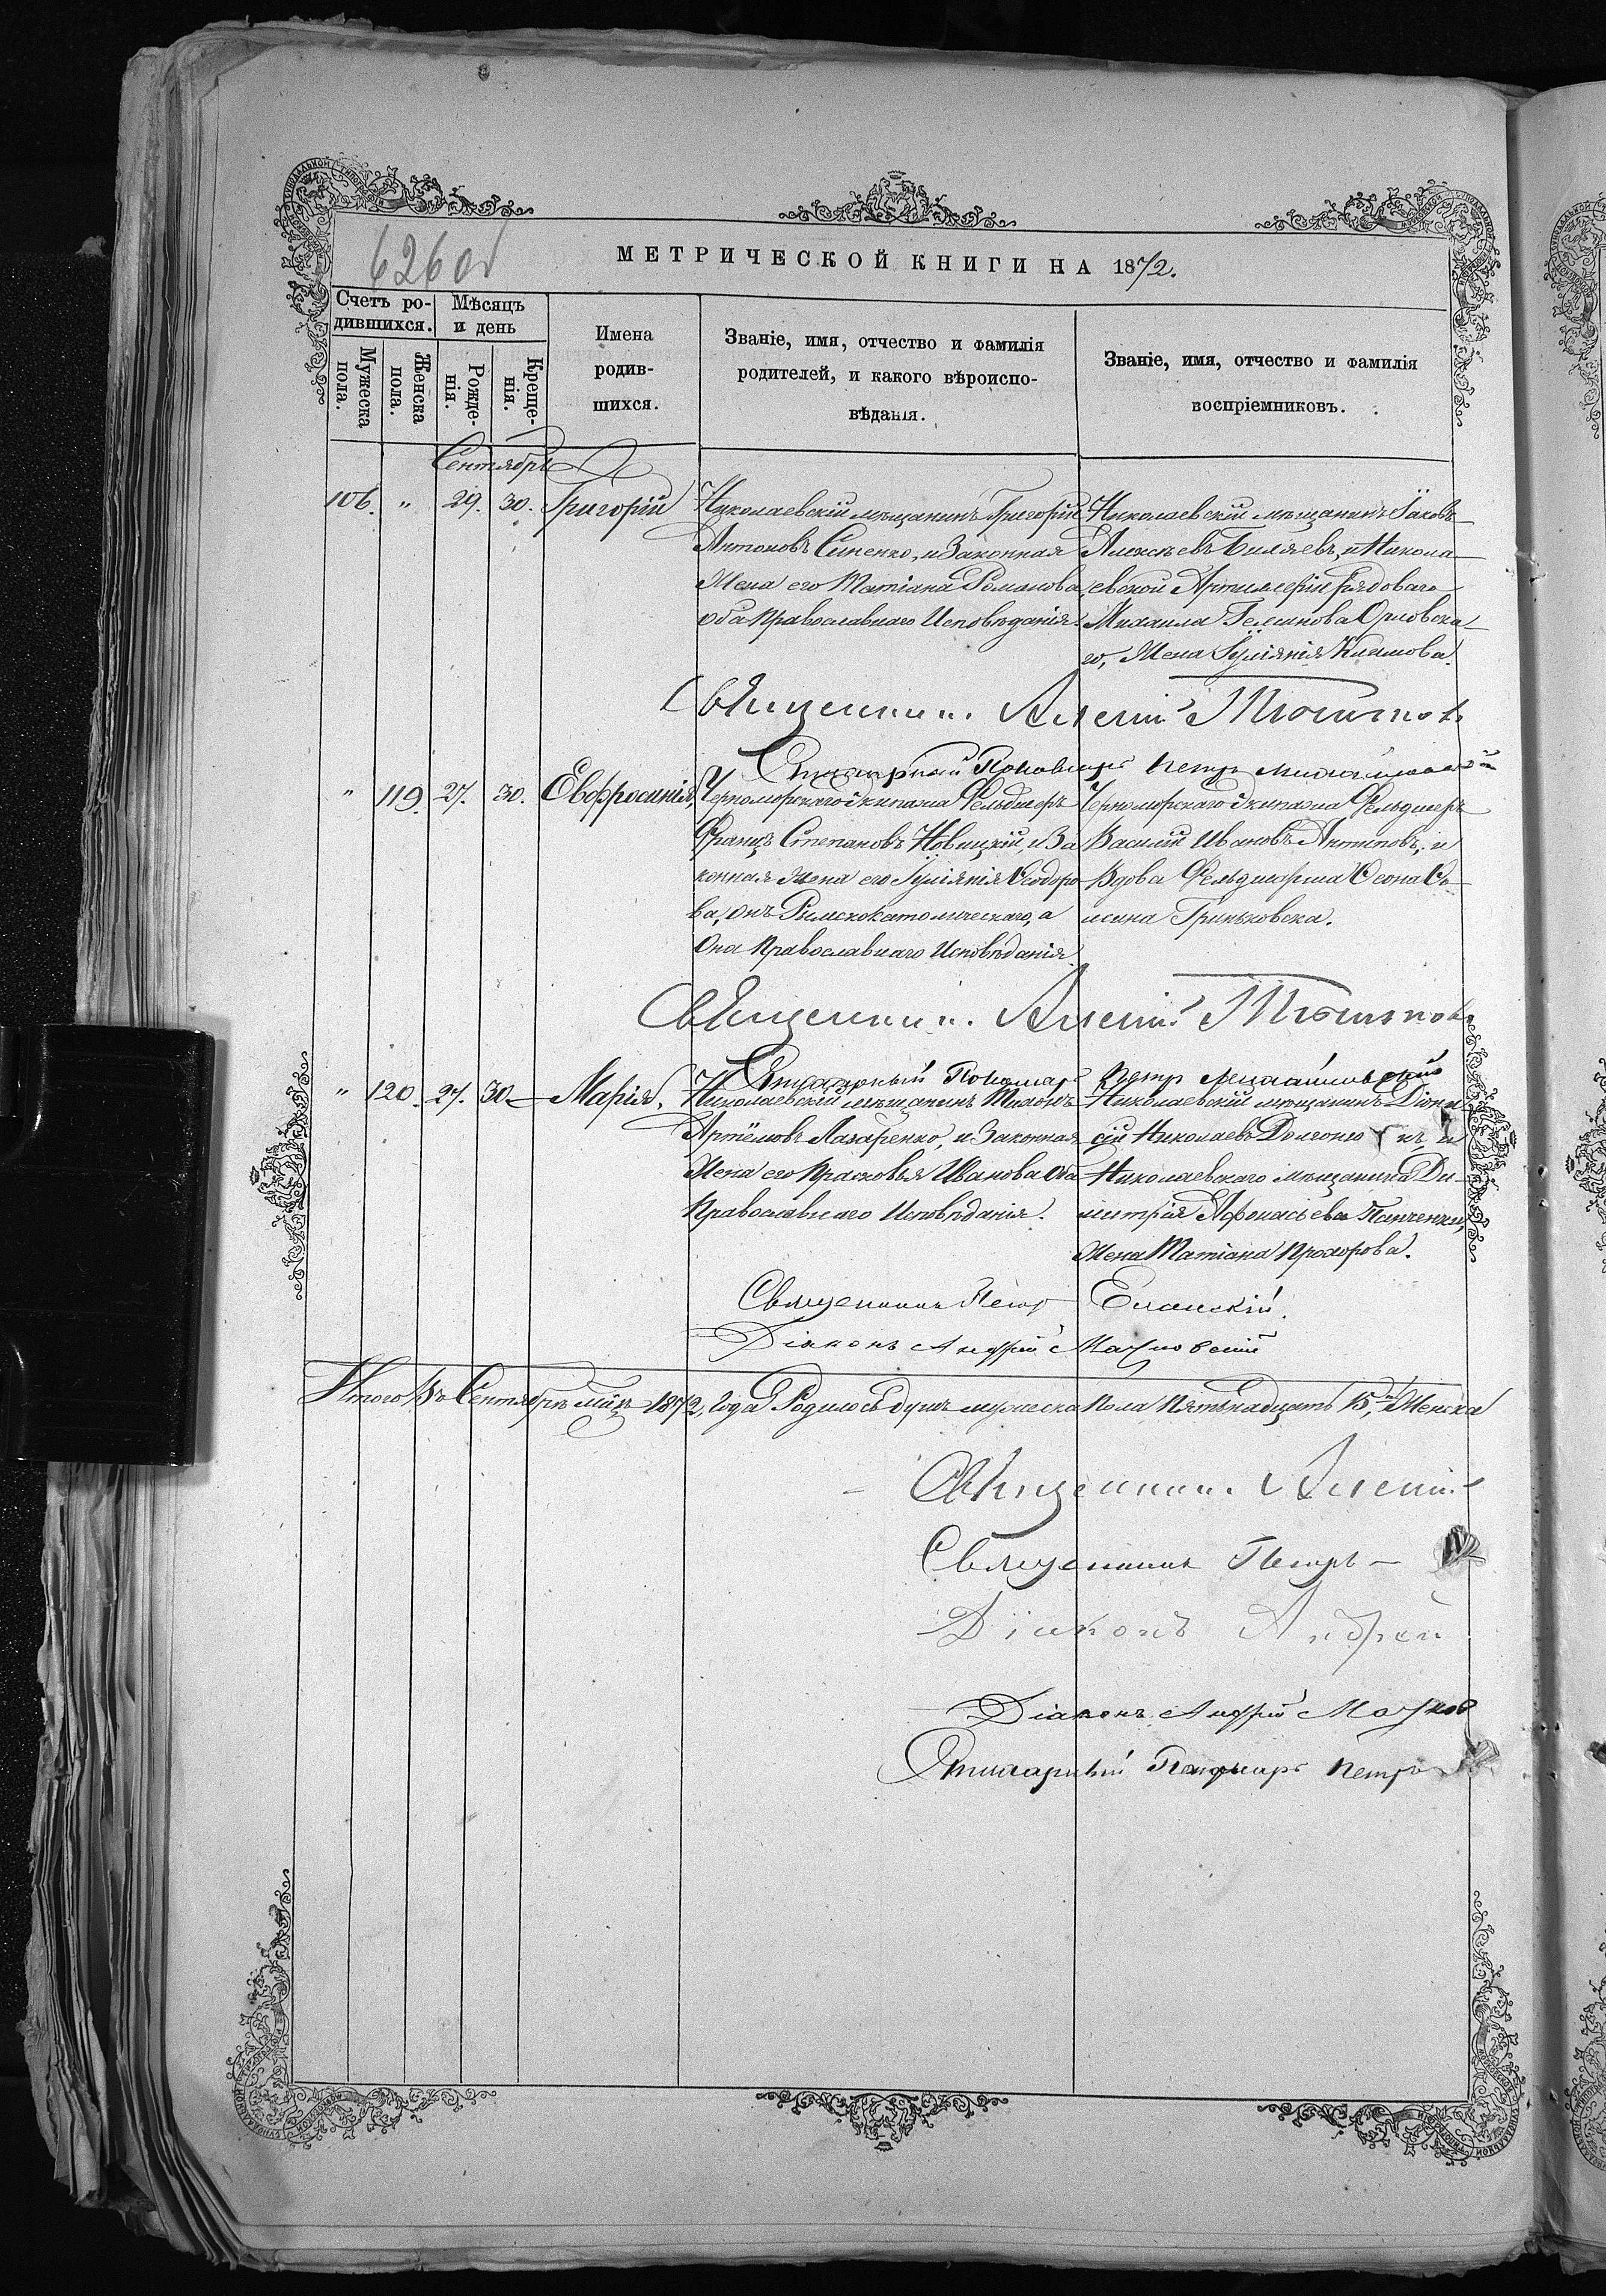 626 об
МЕТРИЧЕСКОЙ КНИГИ НА 1872.
Счетъ родившихся.
Мѣсяцъ и день
Имена родившихся.
Званіе, имя, отчество и фамилія родителей, и какого вѣроисповѣданія.
Званіе, имя, отчество и фамилія воспріемниковъ.
Мужеска пола.
Женска пола.
Рожденія.
Крещенія.
Сентябрь
106. " 29. 30. Григорій
Николаевскій мѣщанинъ Григорій
Антоновъ Синенко, и Законная
Жена его Татіана Романова
оба Православнаго Исповѣданія.
Николаевскій мѣщанинъ Іаковъ
Алексѣевъ Биляевъ, и Никола-
евской Артиллеріи рядоваго
Михаила Орловска-
го, Жена Іуліянія Климова.
Священник
Штатный Пономарь Петръ
" 119. 27. 30. Евфросинія
Черноморскаго Экипажа Фельдшеръ
Францъ Степановъ Новицкій, и За
конная жена его Іуліянія Ѳеодоро
ва, онъ Римскокатолическаго, а
Она Православнаго Исповѣданія.
Черноморскаго Экипажа Фельдшеръ
Василій Ивановъ Антиповъ, и
Вдова Фельдшерша
Гриньковска.
Священник
Штатный Пономарь Петръ
" 120. 27. 30. Марія,
Николаевскій мѣщанинъ
Артёмовъ Лазаренко, и Законная
Жена его Прасковья Иванова Оба
Православнаго Исповѣданія.
Николаевскій мѣщанинъ Діони
сій Николаевъ и
Николаевскаго мѣщанина Ди-
митрія Афонасьева Панченки,
Жена Татіана Прохорова.
Священникъ Петръ Еланскій.
Діаконъ Андрей
Итого Въ Сентябрѣ м-цѣ 1872, Года Родилось душъ мужеска Пола Пятьнадцать 15, Женска
Священник
Священникъ Петръ
Діаконъ Андрей
Діаконъ Андрей
Штатный Пономарь Петръ